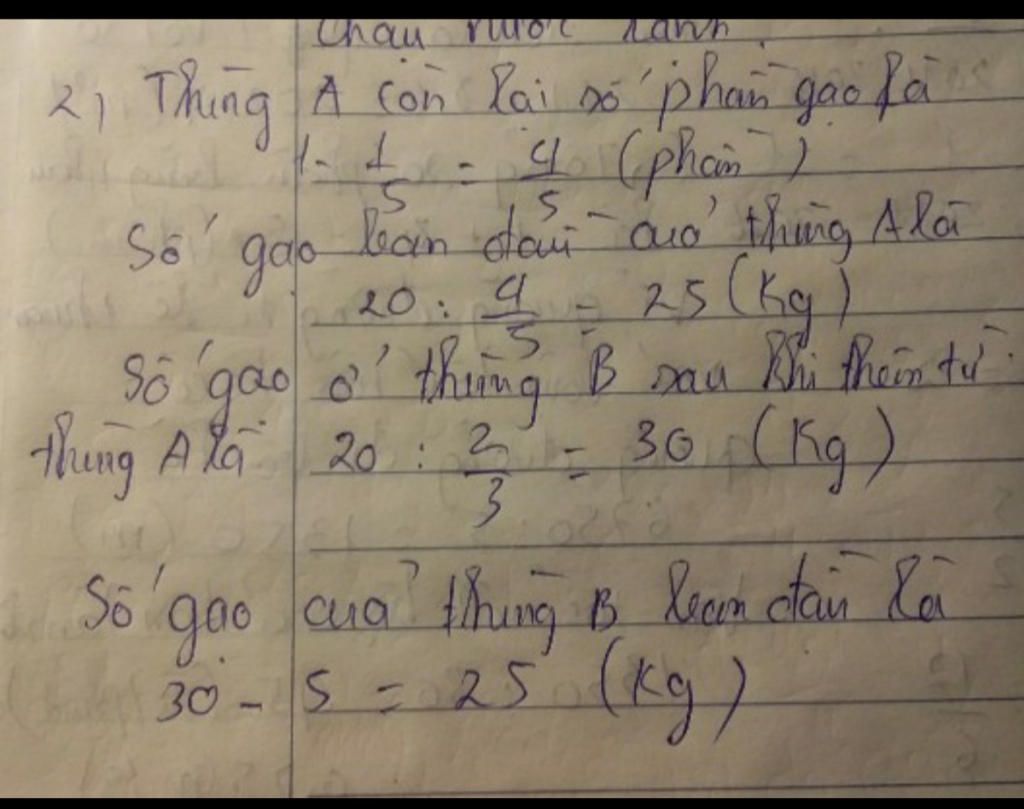 Chậu nước lạnh.
2) Thùng A còn lại số phần gạo là
1 - 1/5 = 4/5 (phần)
Số gạo ban đầu của thùng A là
20 : 4/5 = 25 (Kg)
Số gạo ở thùng B sau khi thêm từ
thùng A là 20 : 2/3 = 30 (Kg)
Số gạo của thùng B ban đầu là
30 - 5 = 25 (Kg)